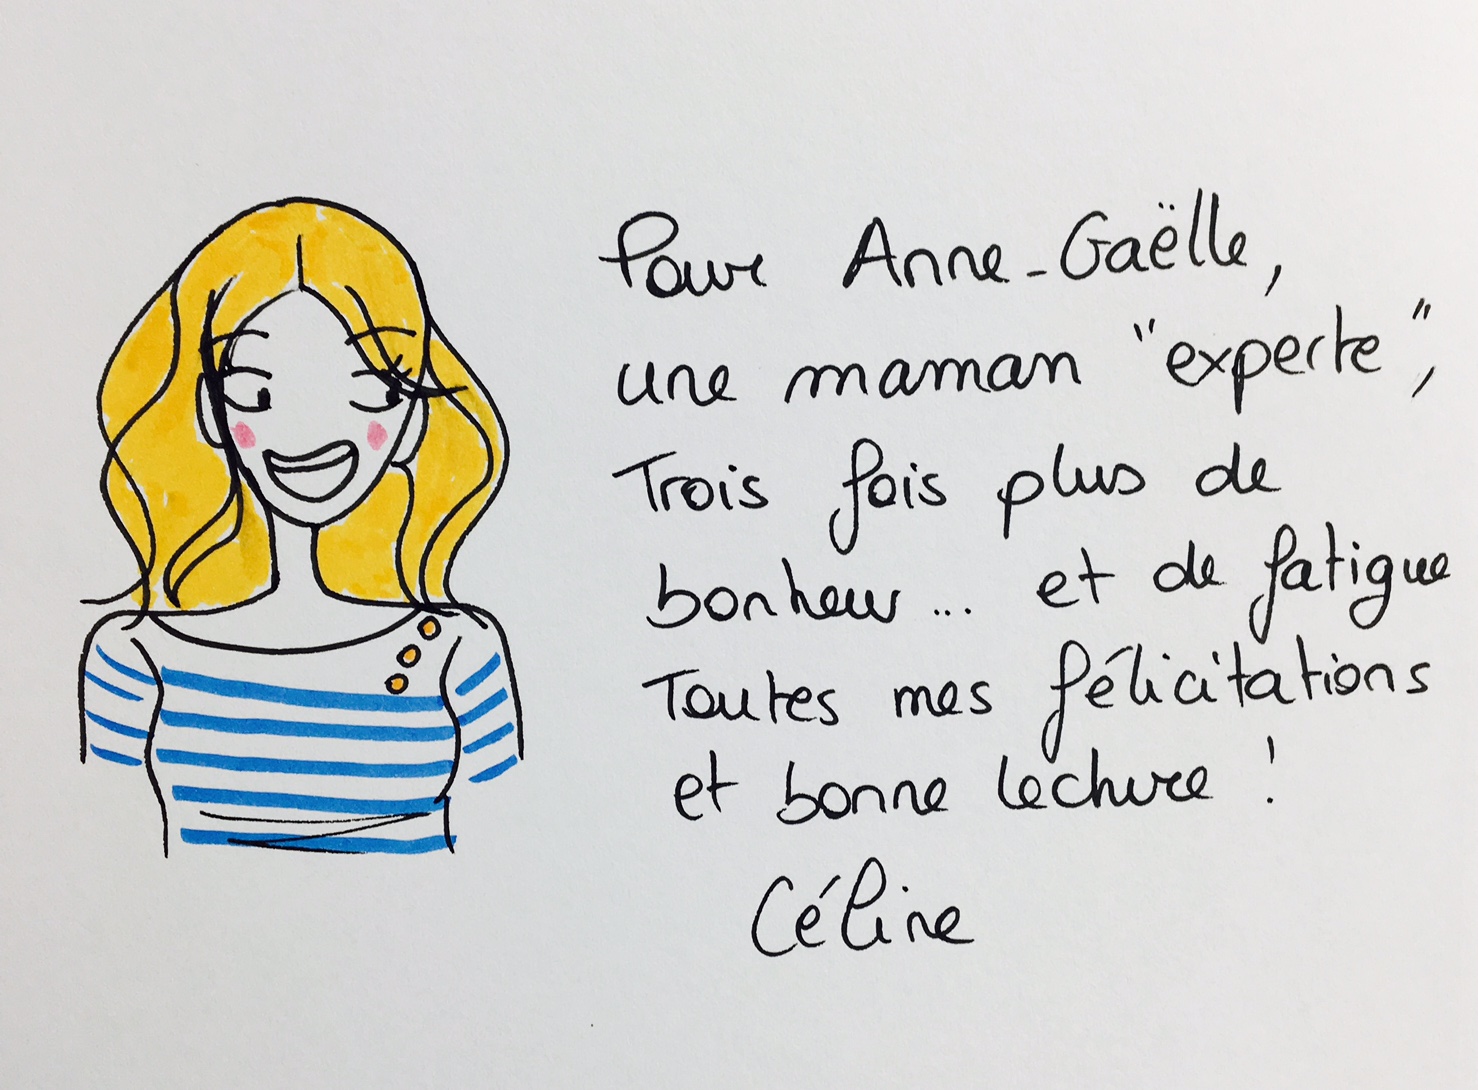 Pour Anne-Gaëlle,
une maman "experte",
Trois fois plus de
bonheur... et de fatigue
Toutes mes félicitations
et bonne lecture !
Céline